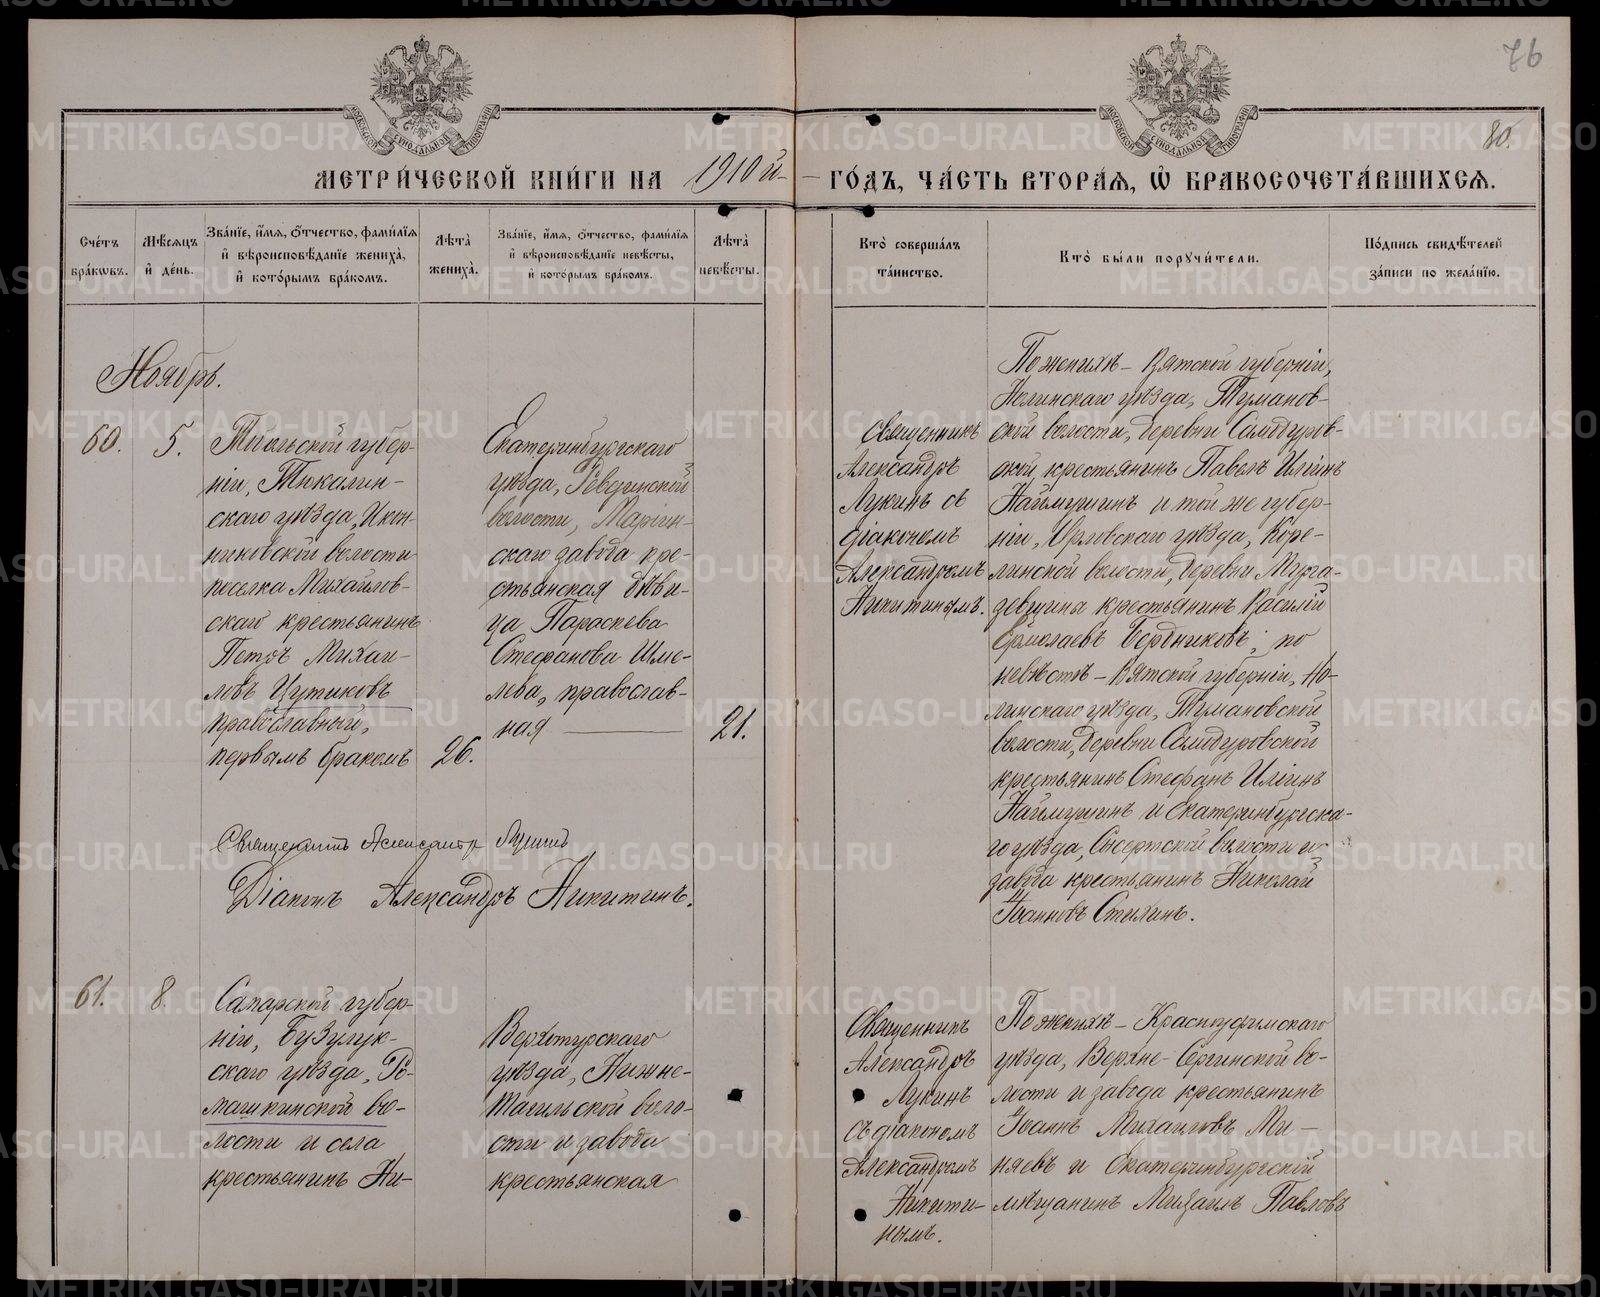 76
80.
МОСКОВСКОЙ СИНОДАЛЬНОЙ ТИПОГРАФІИ
МОСКОВСКОЙ СИНОДАЛЬНОЙ ТИПОГРАФІИ
МЕТРИ́ЧЕСКОЙ КНИ́ГИ НА 1910й ГО́ДЪ, ЧА́СТЬ ВТОРА́Я, Ѡ҆ БРАКОСОЧЕТА́ВШИХСЯ.
Сче́тъ
бра́кѡвъ.
Мѣ́сяцъ
и҆ де́нь.
Зва́нїе, и҆́мя, ѻ҆́тчество, фами́лїя
и҆ вѣроисповѣ́данїе жениха̀,
и҆ кото́рымъ бра́комъ.
Лѣ́та̀
жениха̀.
Зва́нїе, и҆́мя, ѻ҆́тчество, фами́лїя
и҆ вѣроисповѣ́данїе невѣ́сты,
и҆ кото́рымъ бра́комъ.
Лѣ́та̀
невѣ́сты.
Кто̀ соверша́лъ
та́инство.
Кто̀ бы́ли поручи́тели.
По́дпись свидѣ́телей
за́писи по жела́нїю.
Ноябрь.
60.
5.
Тобольской губер-
ніи, Тюкалин-
скаго уѣзда, Икон-
никовской волости
поселка Михайлов-
скаго крестьянинъ
Петръ Михаи-
ловъ Цутиковъ
православный,
первымъ бракомъ
26.
Екатеринбургскаго
уѣзда, Ревдинской
волости, Маріин-
скаго завода кре-
стьянская дѣви-
ца Параскева
Стефанова Шме-
лева, православ-
ная
21.
Священникъ
Александръ
Лукинъ съ
діакономъ
Александромъ
Никитинымъ.
По женихѣ – Вятской губерніи,
Нолинскаго уѣзда, Туманов-
ской волости, деревни Самодуров-
ской, крестьянинъ Павелъ Иліинъ
Наймушинъ и той же губер-
ніи, Орловскаго уѣзда, Коре-
линской волости, деревни
крестьянинъ Василій
Ермолаевъ Бердниковъ; по
невѣстѣ – Вятской губерніи, Но-
линскаго уѣзда, Тумановской
волости, деревни Самодуровской
крестьянинъ Стефанъ Иліинъ
Наймушинъ и Екатеринбургска-
го уѣзда, Сысертской волости и
завода крестьянинъ Николай
Іоанновъ Стихинъ.
Священникъ Александръ Лукинъ
Діаконъ Александръ Никитинъ.
61.
8.
Самарской губер-
ніи, Бузулук-
скаго уѣзда, Ро-
машкинской во-
лости и села
крестьянинъ Ни-
Верхотурскаго
уѣзда, Нижне-
Тагильской воло-
сти и завода
крестьянская
Священникъ
Александръ
Лукинъ
съ діакономъ
Александромъ
Никити-
нымъ.
По женихѣ – Красноуфимскаго
уѣзда, Верхне-Сергинской во-
лости и завода крестьянинъ
Іоаннъ Михаиловъ Ми-
няевъ и Екатеринбургскій
мѣщанинъ Михаилъ Павловъ
METRIKI.GASO-URAL.RU